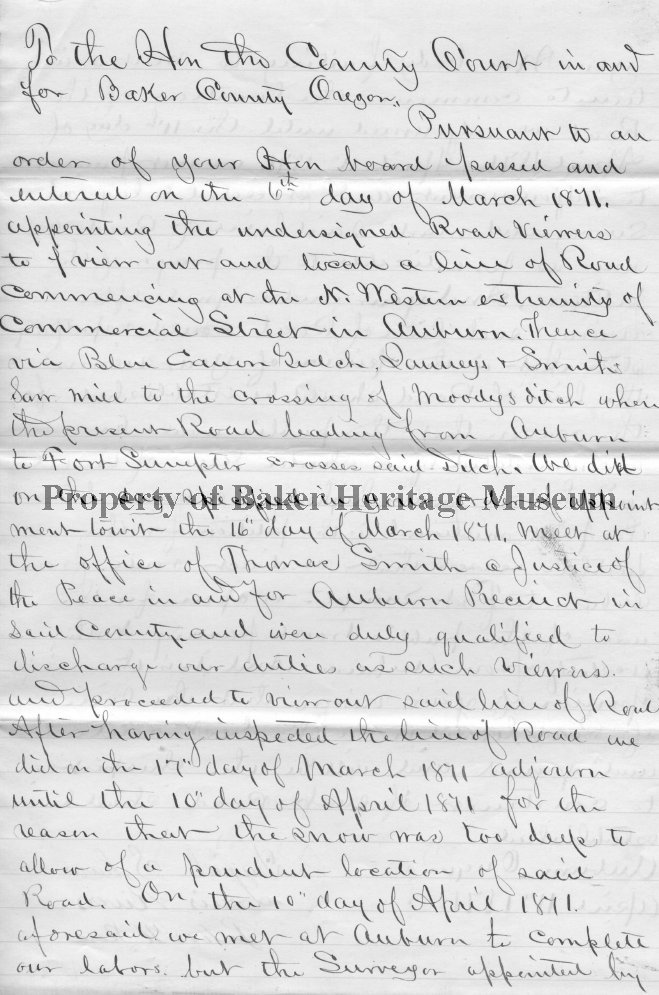 To the Hon the County Court in and
for Baker County Oregon.
Pursuant to an
order of your Hon board passed and
entered on the 6th day of March 1871.
appointing the undersigned Road Viewers
to view out and locate a line of Road
Commencing at the N. Western extremity of
Commercial Street in Auburn. Thence
via Blue Canon Gulch, Ranneys & Smiths
Saw mill to the crossing of Moodys ditch where
the present Road leading from Auburn
to Fort Sumpter crosses said Ditch. We did
on the day specified in order of appoint
Property of Baker Heritage Museum
ment towit the 16" day of March 1871. meet at
the office of Thomas Smith a Justice of
the Peace in and for Auburn Precinct in
said County. and were duly qualified to
discharge our duties as such viewers.
and proceeded to view out said line of Road
After having inspected the line of Road we
did on the 17" day of March 1871 adjourn
until the 10" day of April 1871 for the
reason that the snow was too deep to
allow of a prudent location of said
Road. On the 10" day of April 1871.
aforesaid we met at Auburn to complete
our labors. but the Surveyor appointed by